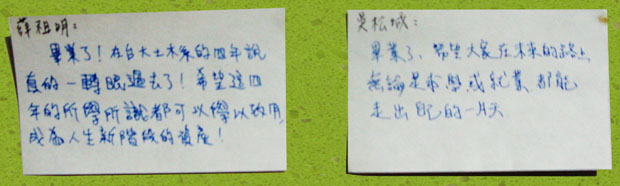 薛祖明：
畢業了！在台大土木系的四年說
真的一轉眼過去了！希望這四
年的所學所識都可以學以致用,
成為人生新階段的資產！
吳松城：
畢業了，希望大家在未來的路上
無論是求學或就業，都能
走出自己的一片天